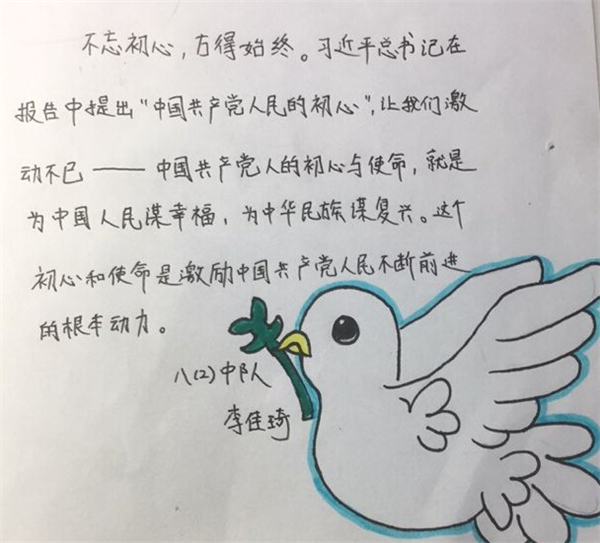 不忘初心，方得始终。习近平总书记在
报告中提出“中国共产党人民的初心”，让我们激
动不已——中国共产党人的初心与使命，就是
为中国人民谋幸福，为中华民族谋复兴。这个
初心和使命是激励中国共产党人民不断前进
的根本动力。
八(2)中队
李佳琦